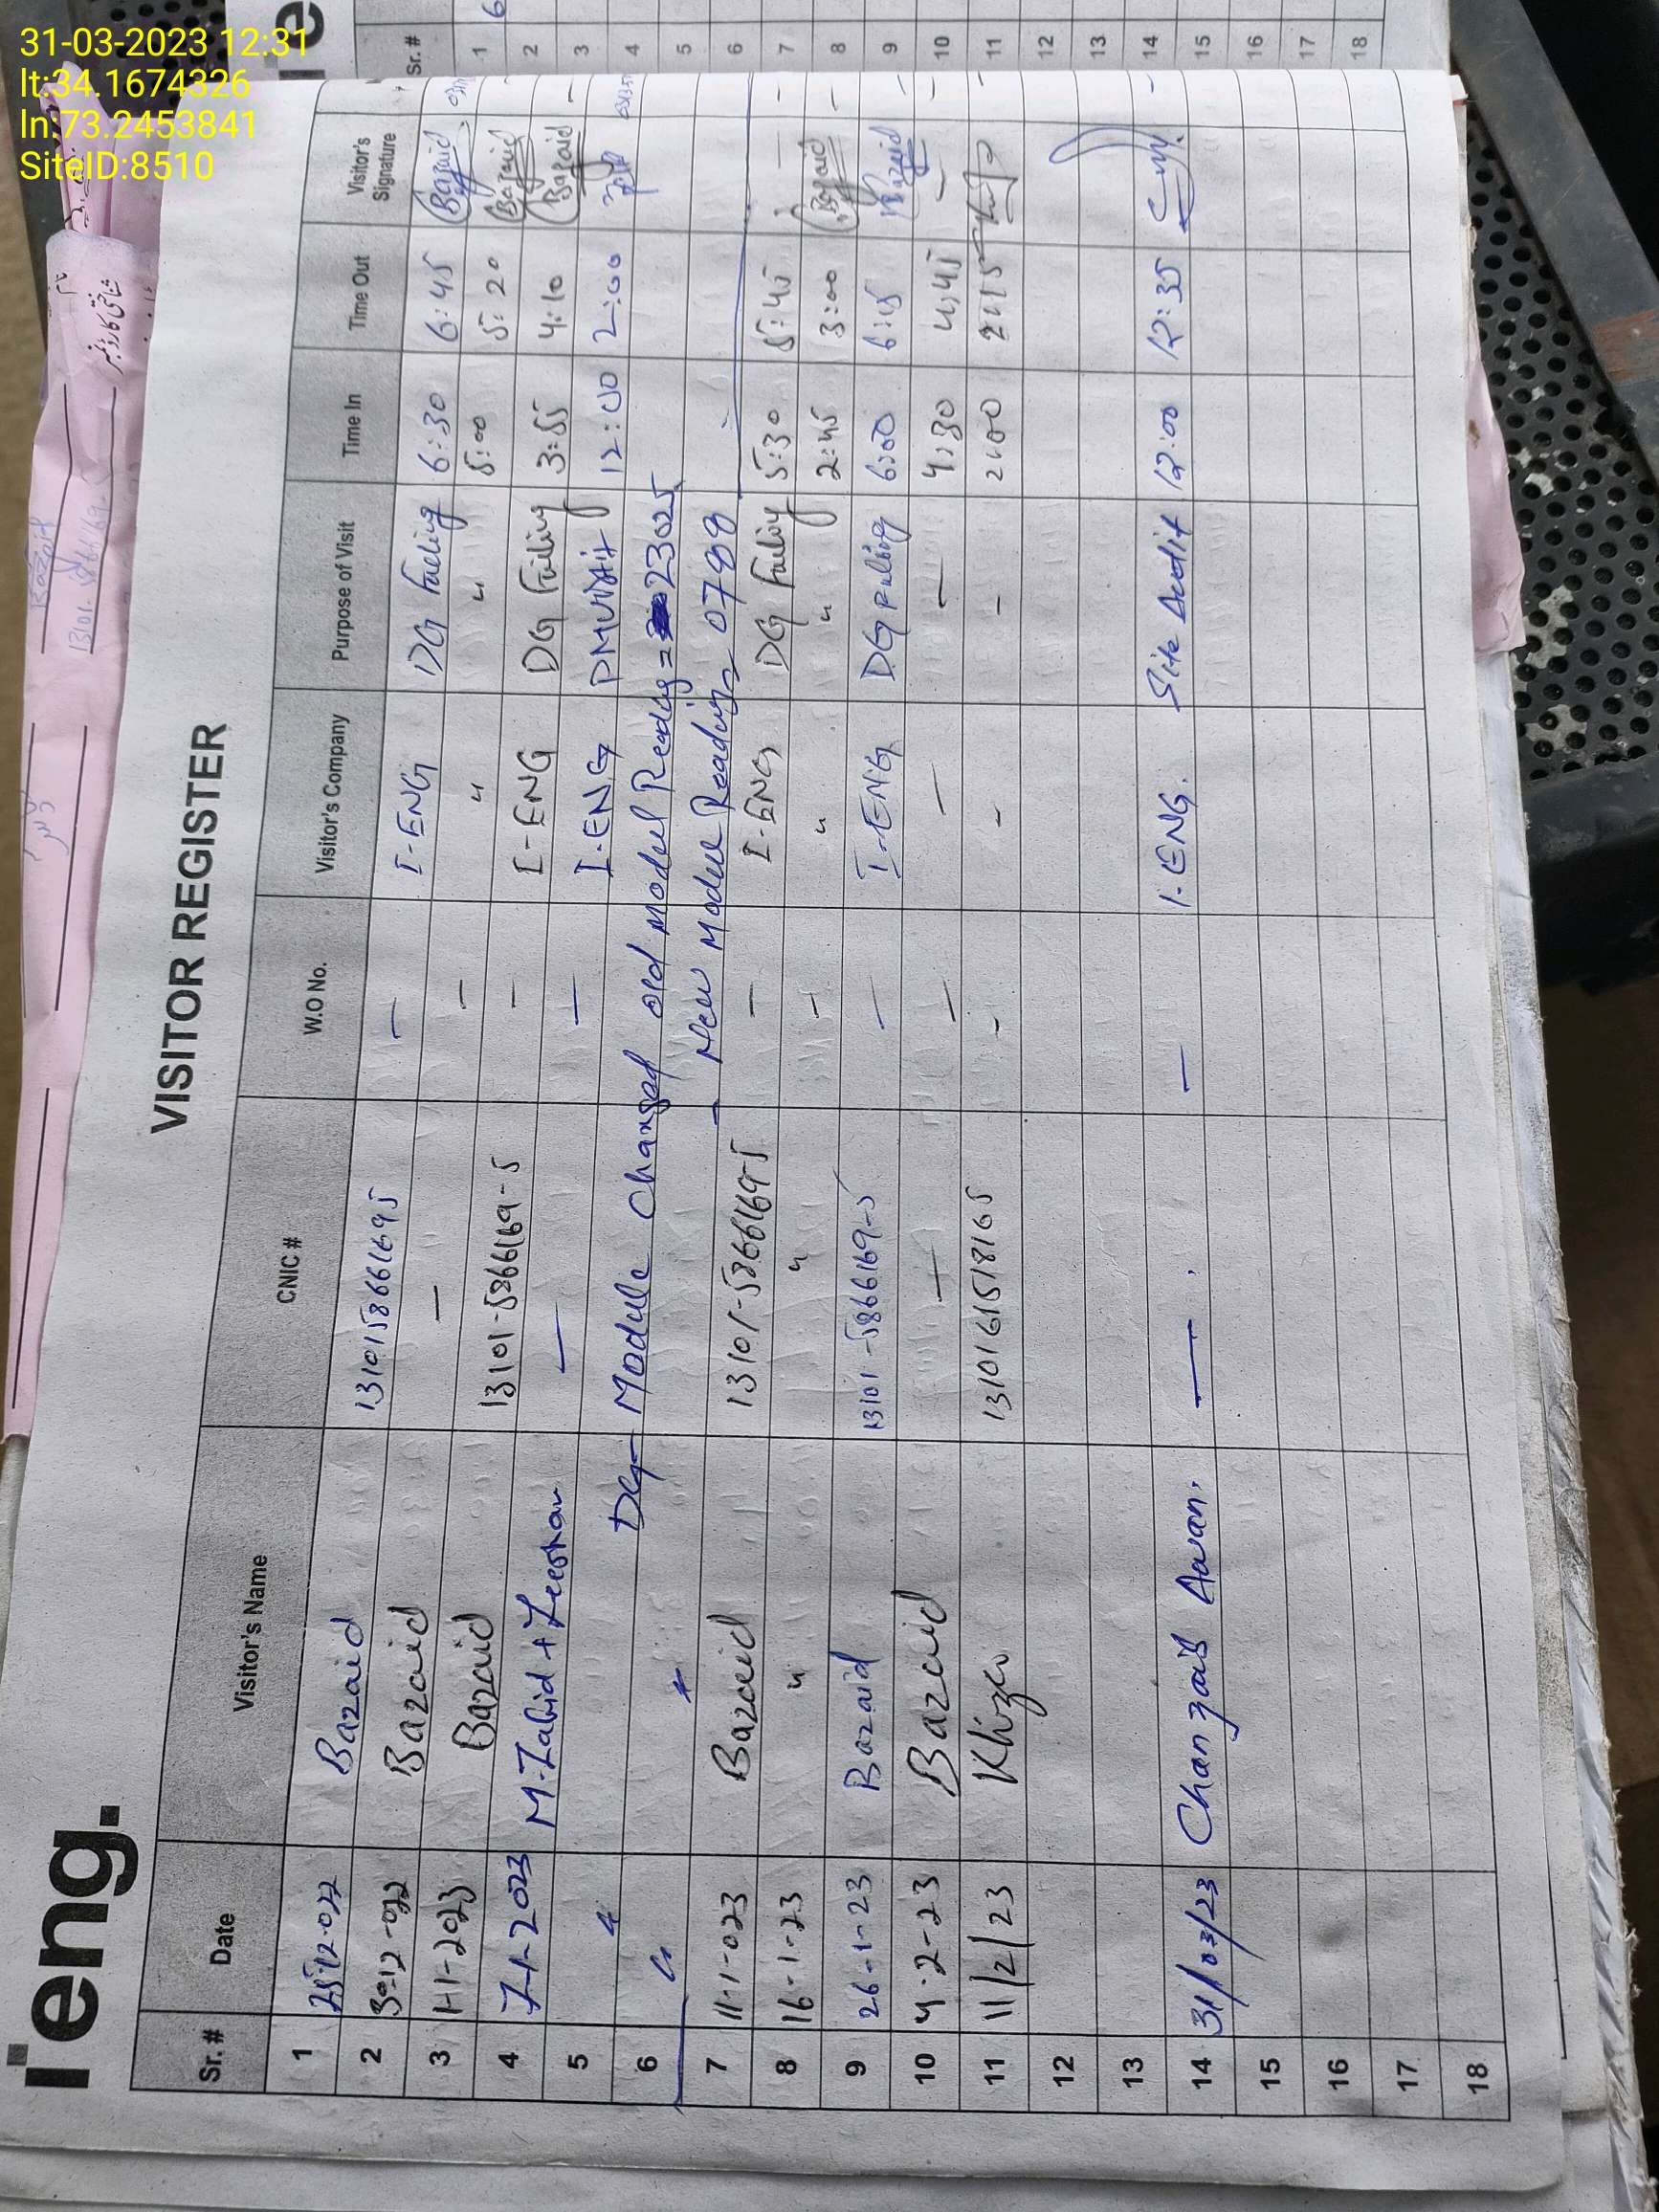 31-03-2023 12:31
lt:34.1674326
ln:73.2453841
SiteID:8510
i'eng.
VISITOR REGISTER
Sr. # Date Visitor's Name CNIC # W.O No. Visitor's Company Purpose of Visit Time In Time Out Visitor's Signature
1 25-12-022 Bazaid 1310158661695 — I-ENG DG Fueling 6:30 6:45 Bazaid
2 30-12-022 Bazaid — — " " 5:00 5:20 Bazaid
3 1-1-2023 Bazaid 13101-5866169-5 — I-ENG DG Fuling 3:55 4:10 Bazaid
4 7-1-2023 M-Zabid + Zeeshan — — I-ENG PMU 12:00 2:00
5 " DG Module Changed old Model Reading = 23025
6 " " New Model Reading = 0788
7 11-1-023 Bazaid 13101-5866169-5 — I-ENG DG Fuling 5:30 5:45
8 16-1-23 " " — " " 2:45 3:00 Bazaid
9 26-1-23 Bazaid 13101-5866169-5 — I-ENG DG Fuling 6:00 6:15 Bazaid
10 4-2-23 Bazaid — — — — 4:30 4:45 —
11 11/2/23 Khizar 1310161518165 - - - 2:00 2:15
12
13
14 31/03/23 Chanzaib Awan. — — I-ENG. Site Audit 12:00 12:35
15
16
17
18
Sr. #
1
2
3
4
5
6
7
8
9
10
11
12
13
14
15
16
17
18
شناختی کارڈ نمبر
نام